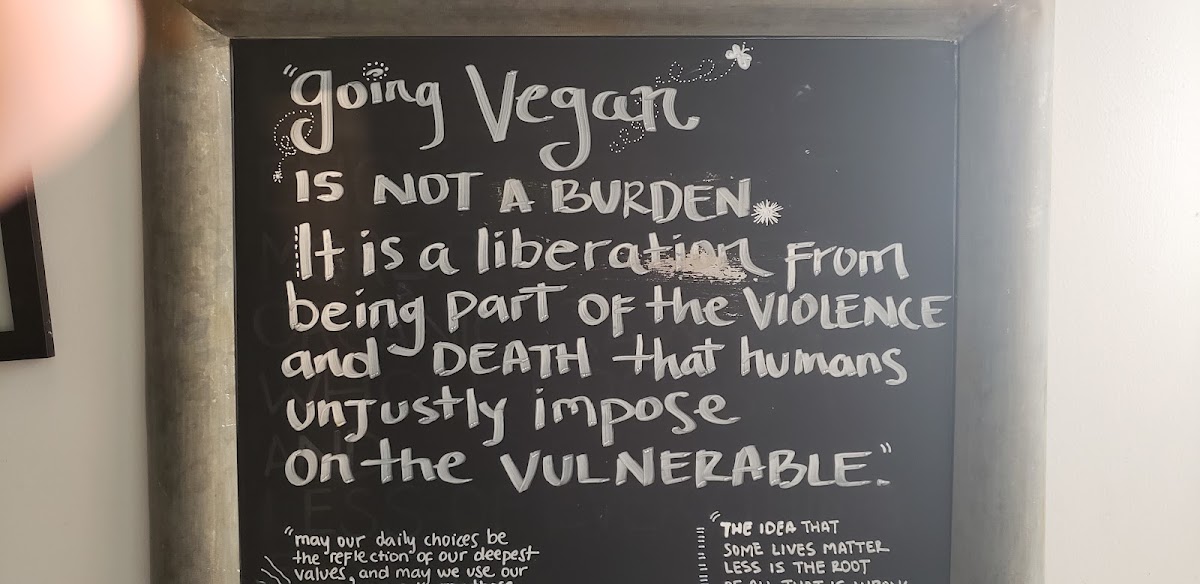 "going Vegan
IS NOT A BURDEN.
It is a liberation from
being part OF the VIOLENCE
and DEATH that humans
unjustly impose
on the VULNERABLE."
"may our daily choices be
the reflection of our deepest
values, and may we use our
"THE IDEA THAT
SOME LIVES MATTER
LESS IS THE ROOT
OF ALL THAT IS WRONG